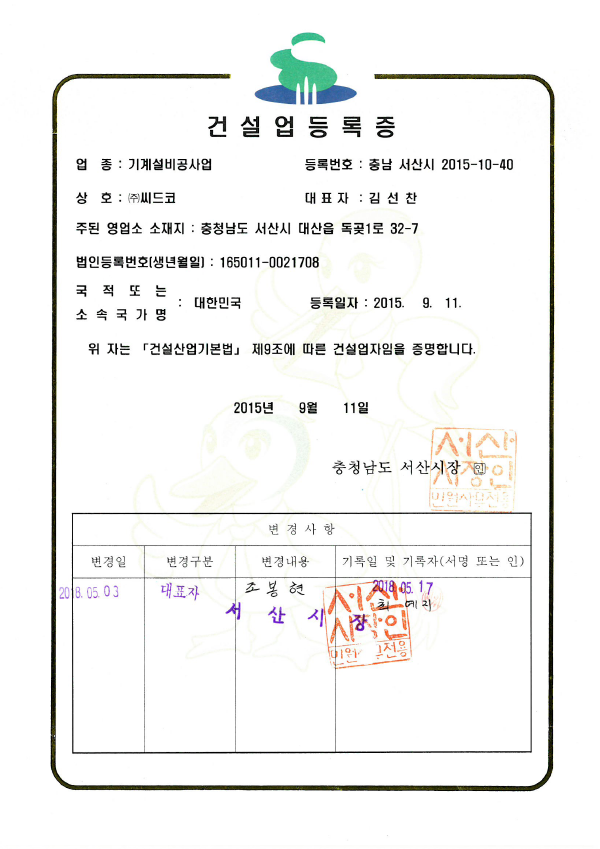 건설업등록증
업 종 : 기계설비공사업 등록번호 : 충남 서산시 2015-10-40
상 호 : ㈜씨드코 대표자 : 김선찬
주된 영업소 소재지 : 충청남도 서산시 대산읍 독곶1로 32-7
법인등록번호(생년월일) : 165011-0021708
국적또는
소속국가명 : 대한민국 등록일자 : 2015. 9. 11.
위 자는 「건설산업기본법」 제9조에 따른 건설업자임을 증명합니다.
2015년 9월 11일
충청남도 서산시장 인
서산
시장인
민원사무전용
변경사항
변경일 변경구분 변경내용 기록일 및 기록자(서명 또는 인)
2018.05.03 대표자 조봉현 2018.05.17
서산시장
서산
시장인
전용